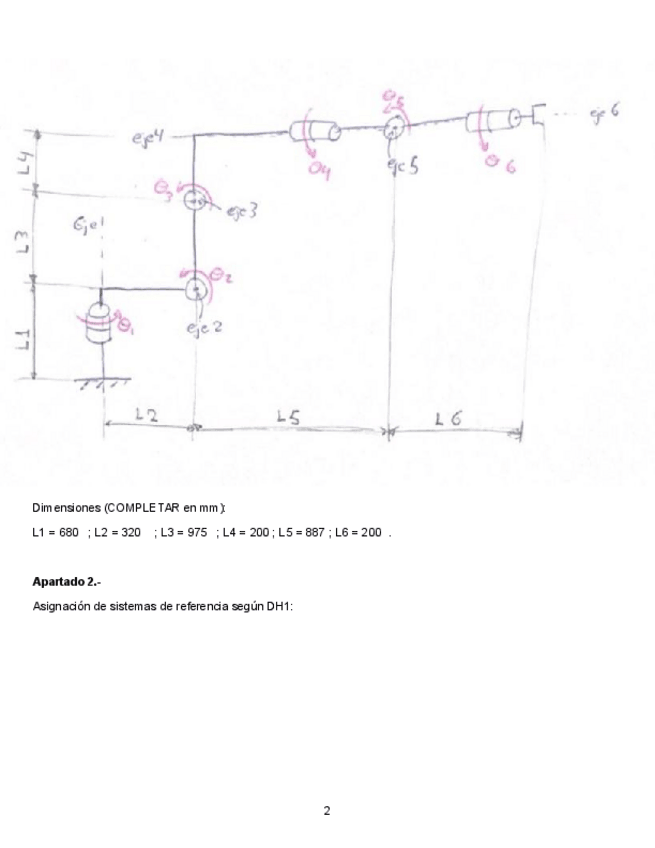 eje4
L4
θ4
θ5
eje5
θ6
eje 6
θ3
eje3
L3
Eje1
θ2
θ1
eje2
L1
L2
L5
L6
Dimensiones (COMPLETAR en mm):
L1 = 680 ; L2 = 320 ; L3 = 975 ; L4 = 200 ; L5 = 887 ; L6 = 200 .
Apartado 2.-
Asignación de sistemas de referencia según DH1:
2